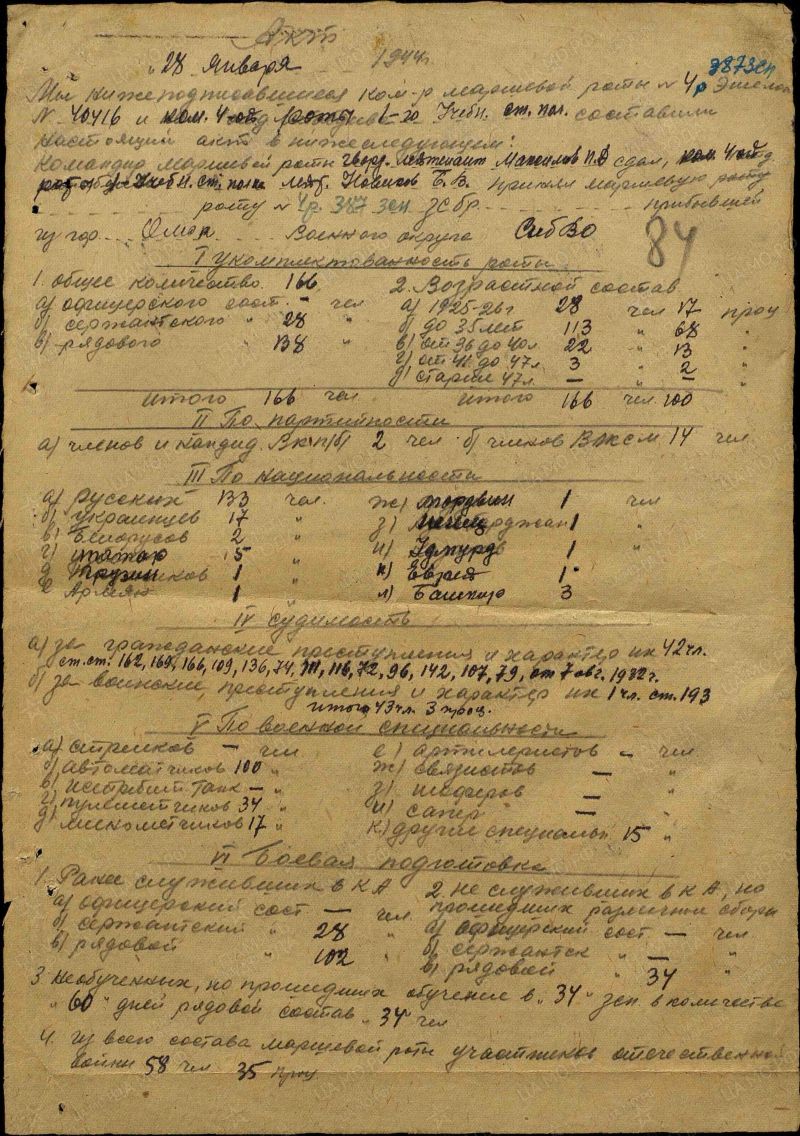 Акт
"28" января 1944г
387 зсп
Мы нижеподписавшиеся ком-р маршевой роты № 4р Эшелон
№ 40416 и ком. 4 роты 1-го Учебн. ст. пол. составили
настоящий акт в нижеследующем:
Командир маршевой роты гвард. лейтенант Максимов П.Д сдал, ком. 4
Учебн. ст. полка Лейт. Новиков Б.В. принял маршевую роту
роту № 4р 387 зсп зсбр прибывшей
из гор. Омск Военного округа СибВО
84
I Укомплектованность роты
1. общее количество 166 2. Возрастной состав
а) офицерского сост. – чел а) 1925-26г 28 чел 17 проц
б) сержантского " 28 " б) до 35 лет 113 " 68 "
в) рядового 138 " в) от 36 до 40л 22 " 13 "
г) от 41 до 47л 3 " 2 "
д) старше 47л – " – "
Итого 166 чел. Итого 166 чел 100
II По партийности
а) членов и кандид. ВКП(б) 2 чел б) членов ВЛКСМ 14 чел
III По национальности
а) русских 133 чел. ж) мордвин 1 чел
б) украинцев 17 " з) 1 "
в) Белорусов 2 " и) Удмурдв 1 "
г) татар 5 " к) Еврей 1 "
д) Грузин 1 " л) Башкир 3
е) Армян 1 "
IV Судимость
а) за гражданские преступления и характер их 42 чл.
ст.ст. 162, 169, 166, 109, 136, 74, 111, 116, 72, 96, 142, 107, 79, от 7 авг. 1932г.
б) за воинские, преступления и характер их 1 чл. ст. 193
итого 43 чл. 3 проц.
V По военной специальности
а) стрелков – чел е) артилеристов – чел
б) автоматчиков 100 " ж) связистов – "
в) истребит. танк – " з) шоферов – "
г) пулеметчиков 34 " и) сапер – "
д) минометчиков 17 " к) другие специальн. 15 "
VI Боевая подготовка
1. Ранее служивших в КА 2. не служивших в КА, но
а) офицерский сост – чел. прошедших различные сборы
б) сержантский " 28 " а) офицерский сост – чел.
в) рядовой " 102 " б) сержантск " – "
в) рядовой " 34 "
3. необученных, но прошедших обучение в "34" зсп. в количестве
"60" дней рядовой состав "34" чел
4. из всего состава маршевой роты участников отечественной
войны 58 чел 35 проц